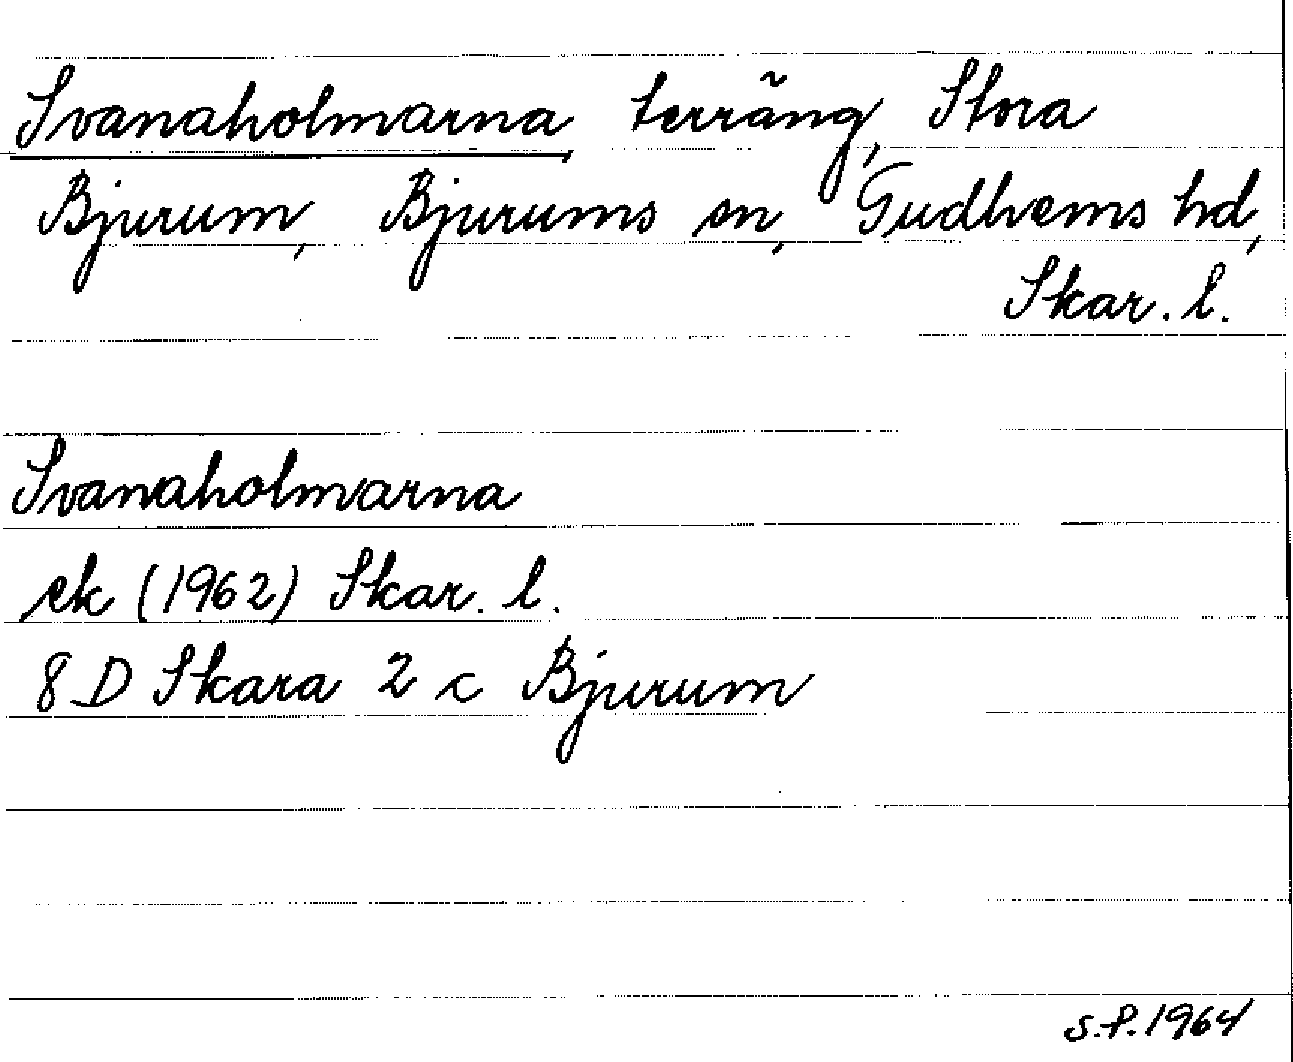 Svanaholmarna, terräng, Stora
Bjurum, Bjurums sn, Gudhems hd,
Skar. l.
Svanaholmarna
ek (1962) Skar. l.
8 D Skara 2 c Bjurum
S.P. 1964